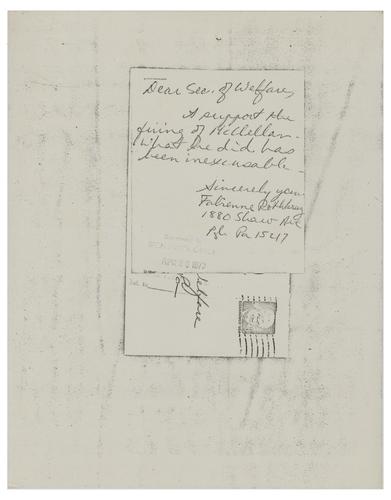 Dear Sec. of Welfare,
I support the
firing of McClellan.
What he did has
been inexcusable.
Sincerely yours
Fabienne
1880 Shaw Ave
Pgh Pa 15217
1973
Welfare